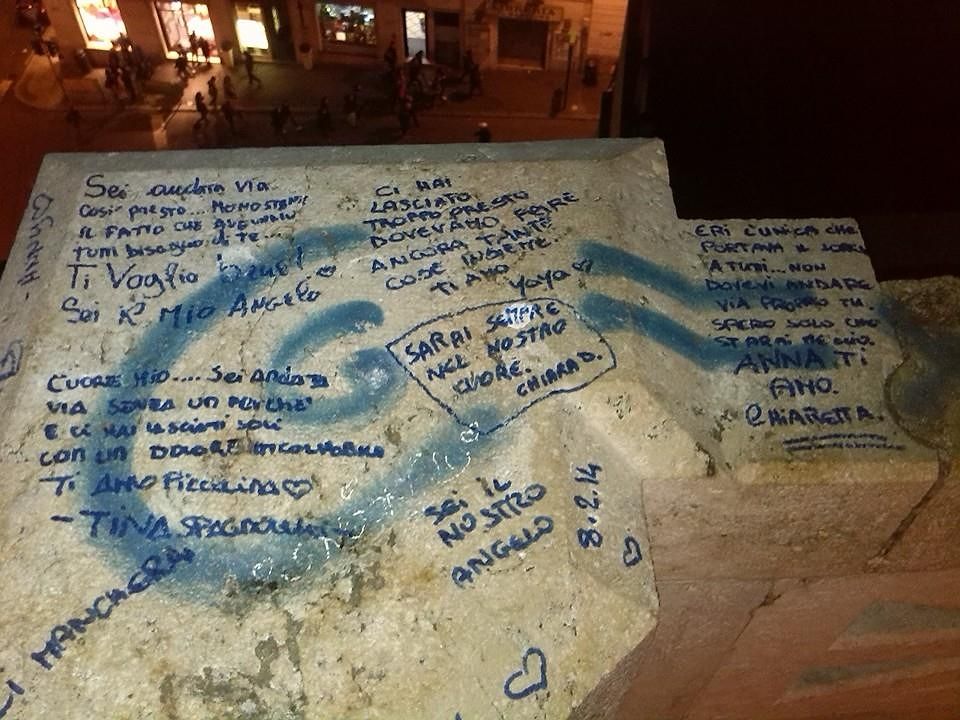 Sei andata via
così presto... nonostante
il fatto che avevamo
tutti bisogno di te...
Ti Voglio bene!
Sei il Mio Angelo
CI HAI
LASCIATO
TROPPO PRESTO
DOVEVAMO FARE
ANCORA TANTE
COSE INSIEME.
TI AMO
yoyo
ERI L'UNICA CHE
PORTAVA IL
A TUTTI... NON
DOVEVI ANDARE
VIA PROPRIO TU.
SPERO SOLO CHE
STARAI MEGLIO.
ANNA TI
AMO.
CHIARETTA.
SARAI SEMPRE
NEL NOSTRO
CUORE.
CHIARA D.
CUORE MIO.... SEI ANDATA
VIA SENZA UN PERCHÉ
E CI HAI LASCIATI SOLI
CON UN DOLORE INCOLMABILE
TI AMO PICCOLINA
- TINA
SEI IL
NOSTRO
ANGELO
8.2.14
CI MANCHERAI